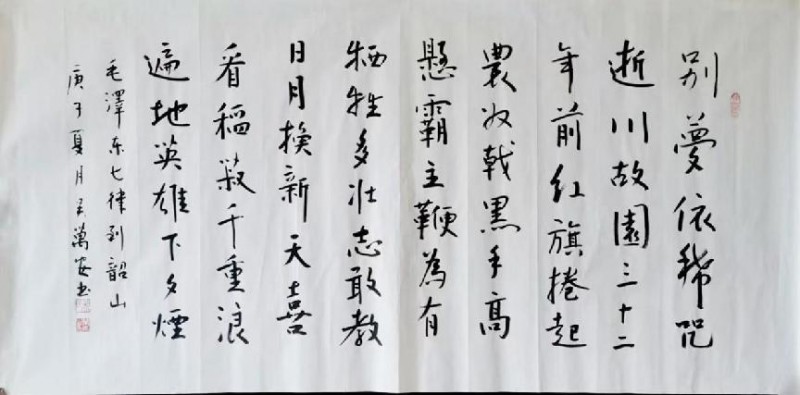 别夢依稀咒
逝川故園三十二
年前红旗捲起
農奴戟黑手高
懸霸主鞭為有
牺牲多壮志敢教
日月换新天喜
看稲菽千重浪
遍地英雄下夕煙
毛澤东七律到韶山
庚子夏月吴萬安书